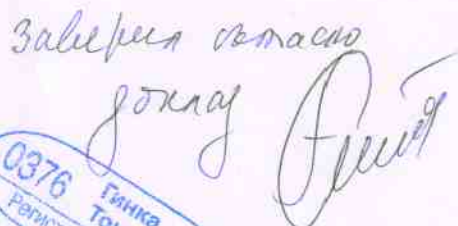 Заверил съгласно
доклад
0376 Гинка
Регис То